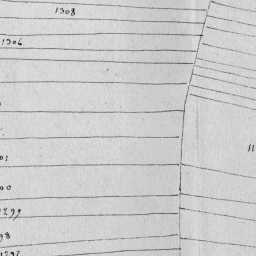 1308
1306
01
00
1299
98
1297
11